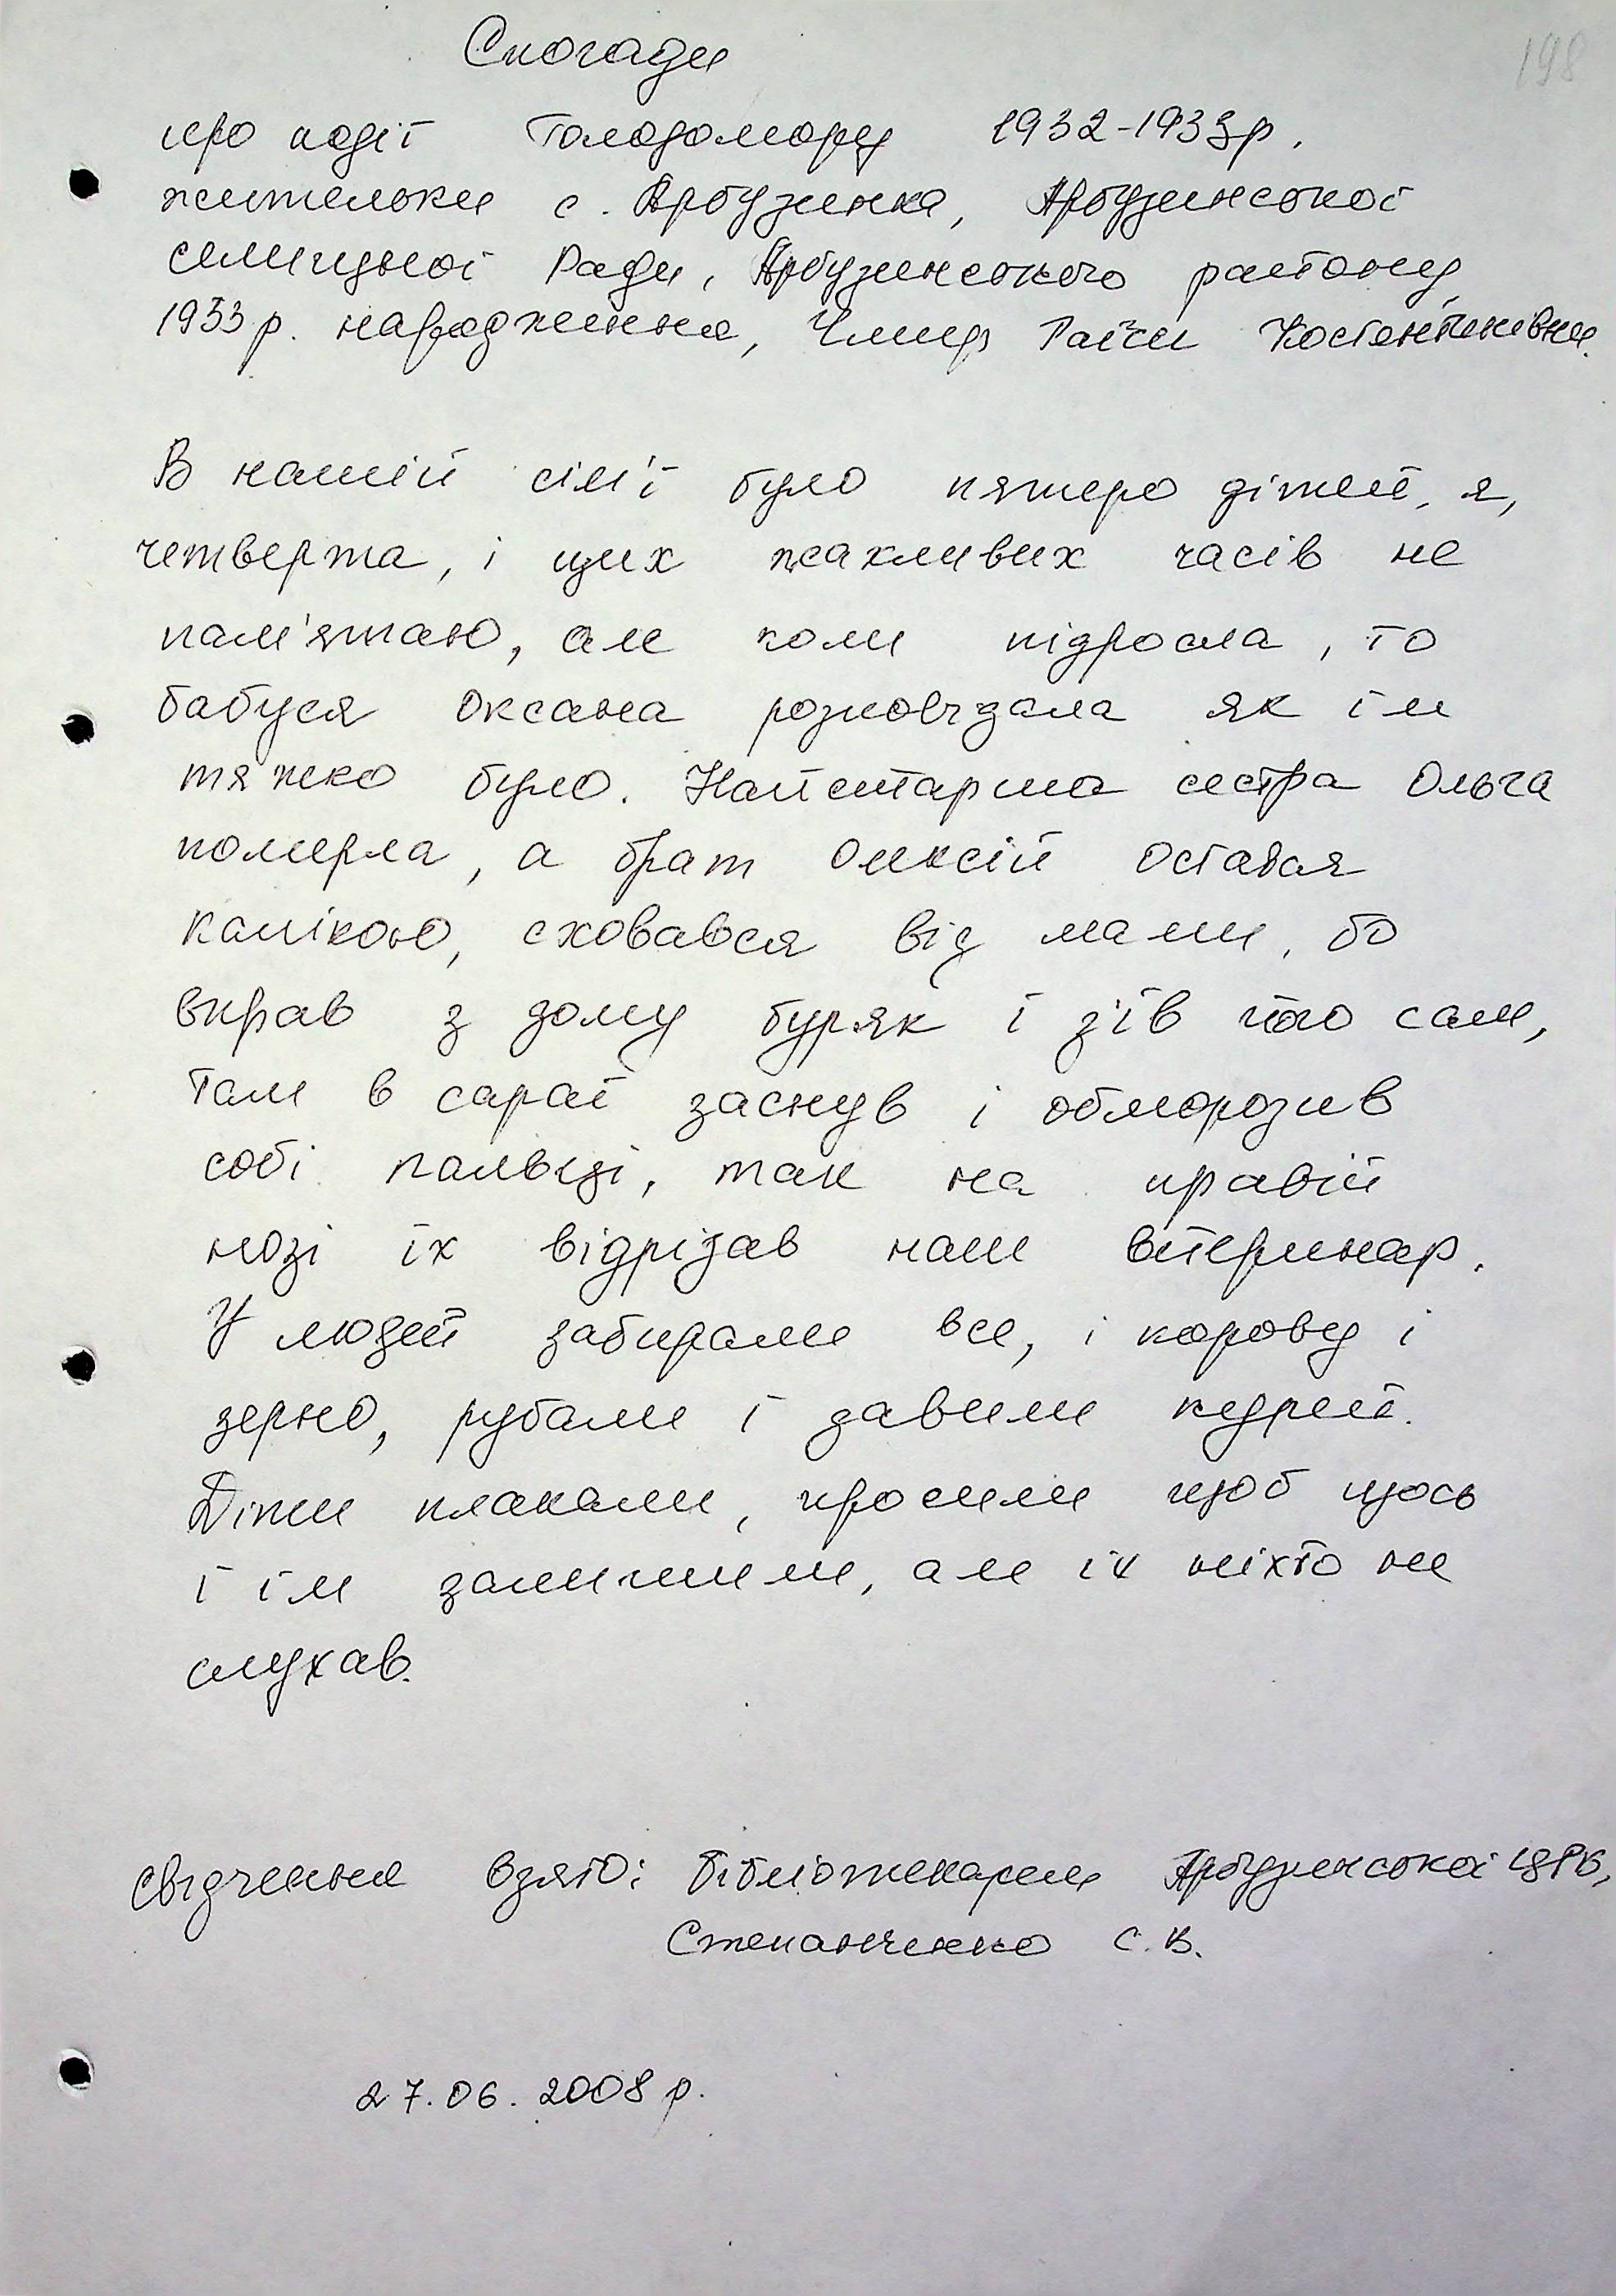 198
Спогади
про події Голодомору 1932-1933р.
жительки с. Арбузинка, Арбузинської
селищної Ради, Арбузинського району
1933 р. народження, Чмир Раїси Костентинівни.
В нашій сім'ї було пятеро дітей, я,
четверта, і цих жахливих часів не
пам'ятаю, але коли підросла, то
бабуся Оксана розповідала як їм
тяжко було. Найстарша сестра Ольга
померла, а брат Олексій остався
калікою, сховався від мами, бо
вкрав з дому буряк і з'їв його сам,
там в сараї заснув і обморозив
собі пальці, так на правій
нозі їх відрізав наш ветеринар.
У людей забирали все, і корову і
зерно, рубали і давили курей.
Діти плакали, просили щоб щось
і їм залишили, але їх ніхто не
слухав.
Свідчення взято: бібліотекарем Арбузинської ЦРБ,
Степанченко С.В.
27.06.2008 р.